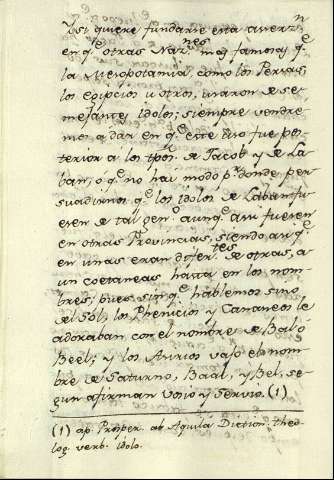 Y si quiere fundarse esta asserz.ⁿ
en q.ᵉ otras Naz.ʳᵉˢ mas famosas q.ᵉ
la Mesopotamia, como los Persas,
los egipcios u otros, usaron de se-
mejantes idolos; siempre vendre
mos a dar en q.ᵉ esse uso fue pos-
terior a los tpõs. de Jacob y de La-
ban, o q.ᵉ no hai modo p.ʳ donde per
suadirnos q.ᵉ los idolos de Laban fu-
eren de tal gen.º aunq.ᵉ assi fueren
en otras Provincias, siendo assi q.ᵉ
en unas eran difer.ᵗᵉˢ de otras, a
un coetaneas hasta en los nom-
bres; pues, sin q.ᵉ hablemos sino
del Sol, los Phenicios y Cananeos le
adoraban con el nombre de Bal ó
Beel; y los Asirios vajo el nom
bre de Saturno, Baal, y Bel, se-
gun afirman Vosio y Servio. (1)
(1) ap. Prosper. ab Aquila Diction. theo
log. verb. idolo.